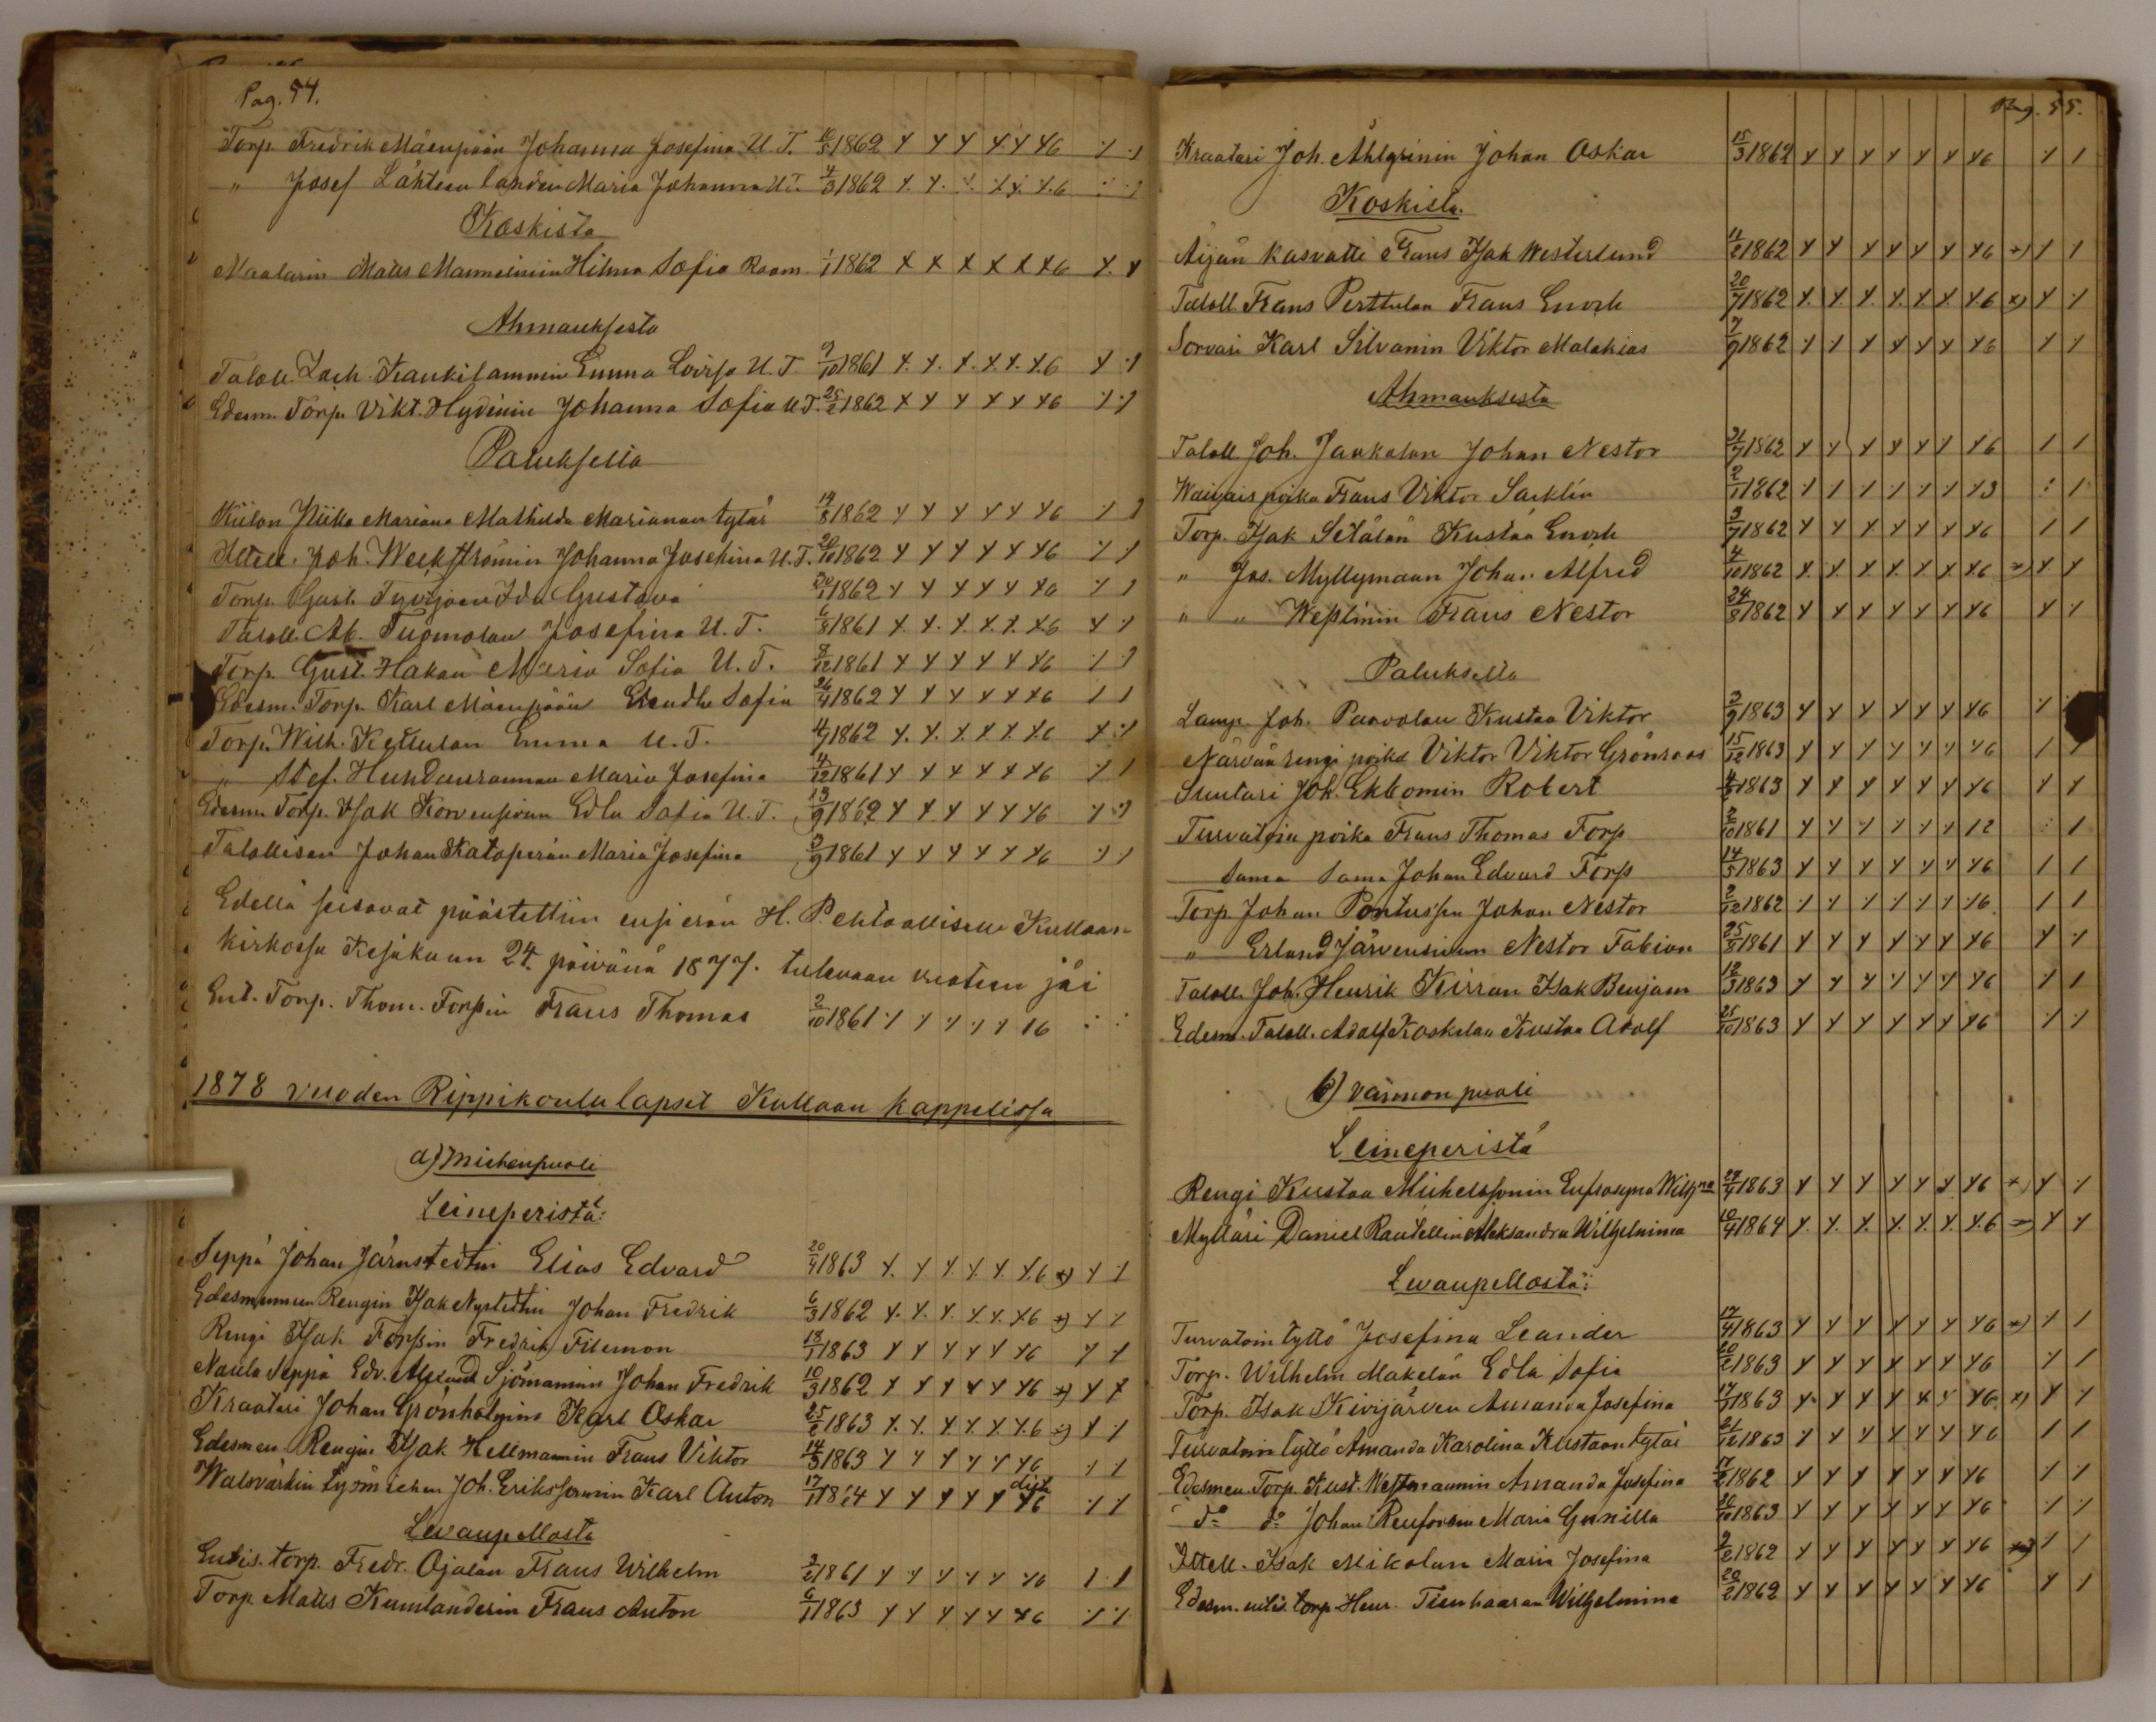 Pag. 54.
Torp. Fredrik Mäenpään Johanna Josefina U. T. 10/5 1862 x x x x x x6 x x
" Josef Lähteen landen Maria Johanna U.T. 4/3 1862 x x x x x x6
Koskista
Maalarin Matts Mannelinin Hilma Sofia Roam. 1/1 1862 x x x x x x6 x x
Ahmauksesta
Taloll. Zach. Kaukilammin Emma Lovisa U. T. 9/10 1861 x x x x x x6 x x
Edesm. Torp. Vikt. Hydenin Johanna Sofia U T. 25/2 1862 x x x x x x6 x x
Paluksella
Kiilon Piika Mariana Mathilda Marianan tytär 19/8 1862 x x x x x x6 x x
Ittell. Joh. Weckströmin Johanna Josehina U. T. 20/10 1862 x x x x x x6 x x
Torp. Gust. Tyvijoen Ida Gustava 30/1 1862 x x x x x x6 x x
Taloll. Ab. Tuomolan Josefina U. T. 6/8 1861 x x x x x x6 x x
Torp. Gust. Hakan Maria Sofia U. T. 8/12 1861 x x x x x x6 x x
Edesm. Torp. Karl Mäenpään Sofia 26/4 1862 x x x x x x6 x x
Torp. Wilh. Kettulan Emma U. T. 4/7 1862 x x x x x x6 x x
" Stef. Maria Josefina 4/12 1861 x x x x x x6 x x
Edesm. Torp. Isak Korvensivun Edla Sofia U. T. 13/9 1862 x x x x x x6 x x
Talollisen Johan Katoperän Maria Josefina 3/9 1861 x x x x x x6 x x
Edellä seisovat päästettiin ensi erän H. P. ehtoolliselle Kullaan
kirkossa Kesäkuun 24. päivänä 1877. tulevaan vuoteen jäi
Ent. Torp. Thom. Forssin Frans Thomas 2/10 1861 x x x x x 16
1878 vuoden Rippikoulu lapset Kullaan kappelissa
a) miehenpuoli
Leineperistä:
Seppä Johan Järnstedtin Elias Edvard 20/4 1863 x x x x x x6 x) x x
Edesmennen Rengin Isak Nystedtin Johan Fredrik 6/3 1862 x x x x x x6 x) x x
Rengi Isak Forssin Fredrik Filemon 18/1 1863 x x x x x x6 x x
Naula Seppä Edv. Sjömannin Johan Fredrik 10/3 1862 x x x x x x6 x) x x
Kraatari Johan Grönholmins Karl Oskar 25/2 1863 x x x x x x6 x) x x
Edesmen. Rengin Isak Hellmannin Frans Viktor 14/3 1863 x x x x x x6 x x
Walsvärkin työmiehen Joh. Erikssonnin Karl Anton 17/11 1864 x x x x x x6 x x
Levanpellosta
Entis. torp. Fredr. Ojalan Frans Wilhelm 2/2 1861 x x x x x x6 x x
Torp. Matts Kumlanderin Frans Anton 6/11 1863 x x x x x x6 x x
Pag. 55.
Kraatari Joh. Åhlgrinin Johan Oskar 15/3 1862 x x x x x x x6 x x
Koskista.
Äijän kasvatti Frans Isak Westerlund 11/2 1862 x x x x x x x6 x) x x
Taloll. Frans Perttulan Frans Enok 20/7 1862 x x x x x x x6 x) x x
Sorvari Karl Silvanin Viktor Malakias 7/9 1862 x x x x x x x6 x x
Ahmauksesta
Taloll. Joh. Jaakolan Johan Nestor 21/7 1862 x x x x x x x6 x x
Waivais poika Frans Viktor Sacklin 2/1 1862 x x x x x x x3 x
Torp. Isak Setälän Kustaa Enok 3/7 1862 x x x x x x x6 x x
" Jos. Myllymaan Johan Alfred 4/10 1862 x x x x x x x6 x) x x
" " Weslinin Frans Nestor 24/8 1862 x x x x x x x6 x x
Paluksella
Lamp. Joh. Paavolan Kustaa Viktor 3/9 1863 x x x x x x x6 x
Närvän rengi poika Viktor Viktor Grönroos 15/12 1863 x x x x x x x6 x x
Suutari Joh. Ekbomin Robert 1863 x x x x x x x6 x x
Turvatoin poika Frans Thomas Forss 2/10 1861 x x x x x x 12 x
Sama Sama Johan Edvard Forss 14/5 1863 x x x x x x x6 x x
Torp. Johan Pontussen Johan Nestor 2/12 1862 x x x x x x x6 x x
" Erland Järvensivun Nestor Fabian 25/8 1861 x x x x x x x6 x x
Taloll. Joh. Henrik Kirran Isak Benjam 12/3 1863 x x x x x x x6 x x
Edesm. Taloll. Adolf Koskelan Kustaa Adolf 25/10 1863 x x x x x x x6 x x
b) vaimon puoli
Leineperistä
Rengi Kustaa Michelssonin Eufrosyna Wilh:na 27/4 1863 x x x x x x x6 x) x x
Mylläri Daniel Rautellin Aleksandra Wilhelmina 10/4 1864 x x x x x x x6 x) x x
Levanpellosta:
Turvatoin tyttö Josefina Leander 17/4 1863 x x x x x x x6 x) x x
Torp. Wilhelm Makelän Edla Sofia 20/2 1863 x x x x x x x6 x x
Torp. Isak Kivijärven Amanda Josefina 17/7 1863 x x x x x x x6 x) x x
Turvatoin tyttö Amanda Karolina Kustaan tytär 21/12 1863 x x x x x x x6 x x
Edesmen. Torp. Kust. Westmannin Amanda Josefina 17/2 1862 x x x x x x x6 x x
d:o d:o Johan Renforsen Maria Gunilla 30/10 1863 x x x x x x x6 x x
Ittell. Isak Mikolan Maria Josefina 2/2 1862 x x x x x x x6 x x
Edesm. entis. torp. Henr. Tienhaaran Wilhelmina 20/2 1862 x x x x x x x6 x x